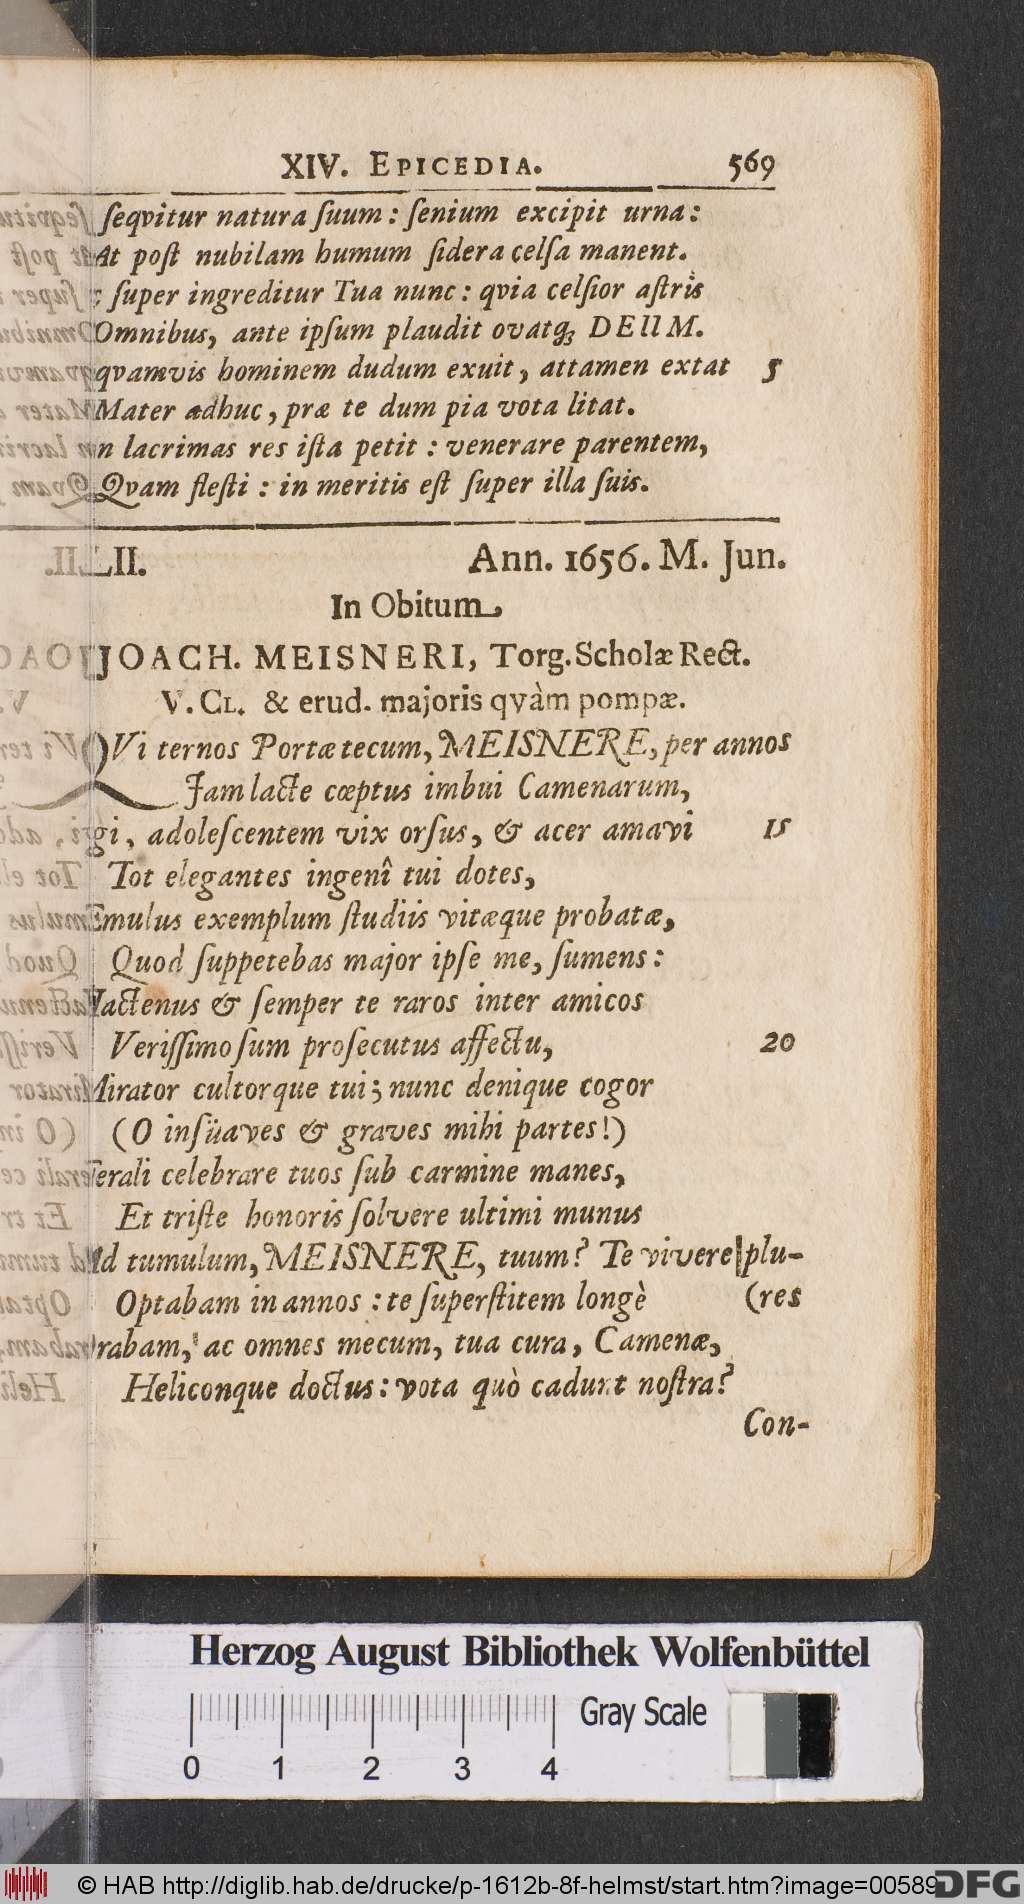 XIV. EPICEDIA. 569
ſeqvitur natura ſuum: ſenium excipit urna:
At poſt nubilam humum ſidera celſa manent.
ſuper ingreditur Tua nunc: qvia celſior aſtris
Omnibus, ante ipſum plaudit ovatq; DEUM.
qvamvis hominem dudum exuit, attamen extat 5
Mater adhuc, præ te dum pia vota litat.
n lacrimas res iſta petit: venerare parentem,
Qvam fleſti: in meritis eſt ſuper illa ſuis.
LII. Ann. 1656. M. Jun.
In Obitum
JOACH. MEISNERI, Torg. Scholæ Rect.
V. CL. & erud. majoris qvàm pompæ.
QVi ternos Portæ tecum, MEISNERE, per annos
Jam lacte cœptus imbui Camenarum,
gi, adoleſcentem vix orſus, & acer amavi 15
Tot elegantes ingenî tui dotes,
Æmulus exemplum ſtudiis vitæque probatæ,
Quod ſuppetebas major ipſe me, ſumens:
Hactenus & ſemper te raros inter amicos
Veriſſimo ſum proſecutus affectu, 20
Mirator cultorque tui; nunc denique cogor
(O inſüaves & graves mihi partes!)
Ferali celebrare tuos ſub carmine manes,
Et triſte honoris ſolvere ultimi munus
Ad tumulum, MEISNERE, tuum? Te vivere plu-
Optabam in annos: te ſuperſtitem longè (res
Orabam, ac omnes mecum, tua cura, Camenæ,
Heliconque doctus: vota quò cadunt noſtra?
Con-
Herzog August Bibliothek Wolfenbüttel
Gray Scale
0 1 2 3 4
© HAB http://diglib.hab.de/drucke/p-1612b-8f-helmst/start.htm?image=00589
DFG